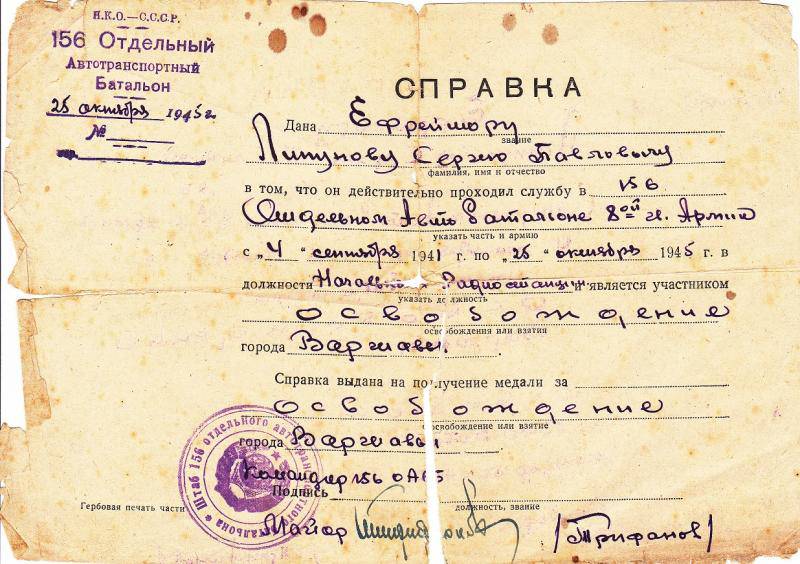 Н.К.О.—С.С.С.Р.
156 Отдельный
Автотранспортный
Батальон
25 октября 1945 г.
№
СПРАВКА
Дана Ефрейтору
звание
Липунову Сергею Павловичу
фамилия, имя и отчество
в том, что он действительно проходил службу в 156
Отдельном Авто Баталионе 8ой гв. Армии
указать часть и армию
с „4" сентября 1941 г. по „25" октября 1945 г. в
должности Начальник Радиостанции является участником
указать должность
освобождение
освобождения или взятия
города Варшавы.
Справка выдана на получение медали за
освобождение
освобождения или взятие
города Варшавы
Командир 156 ОАБ
Подпись
должность, звание
Гербовая печать части
Майор
/Трифанов/
Штаб 156 отдельного автотранспортного батальона